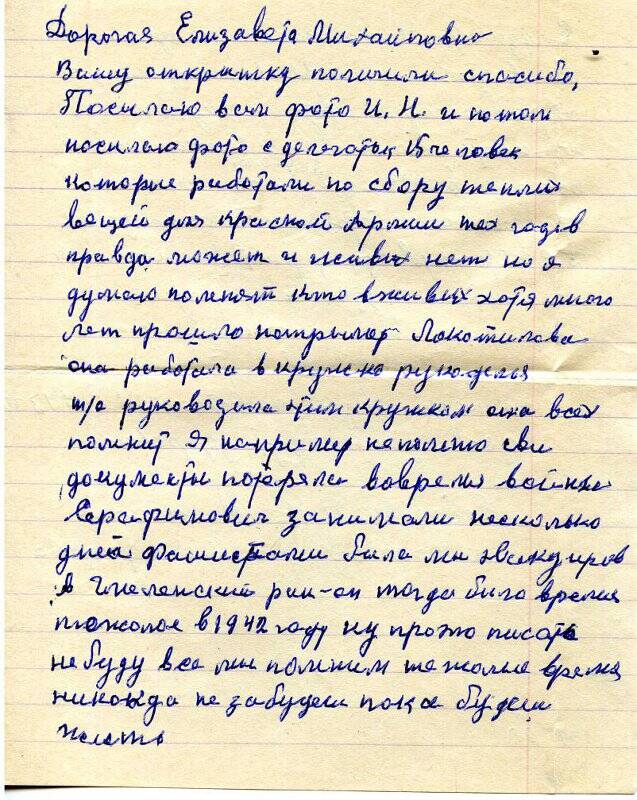 Дорогая Елизавета Михайловна
Вашу открытку получили спасибо,
Посылаю вам фото И. Н. и потом
посылаю фото с делегаток 15 человек
которые работали по сбору теплих
вещей для красной Армии тех годов
правда может и живых нет но я
думаю помнят кто вживых хотя много
лет прошло например Локотилова
она работала в кружке рукоделья
т/а руководила этим кружком она всех
помнит Я например непомню сви
документы потеряла вовремя войны
Серафимович занимали несколько
дней фашистами била мы эвакуиров
в Гмеленский рай-он тогда било время
тяжолое в 1942 году ну про это писать
небуду все мы помним тяжолые время
никогда не забудем пока будем
жить